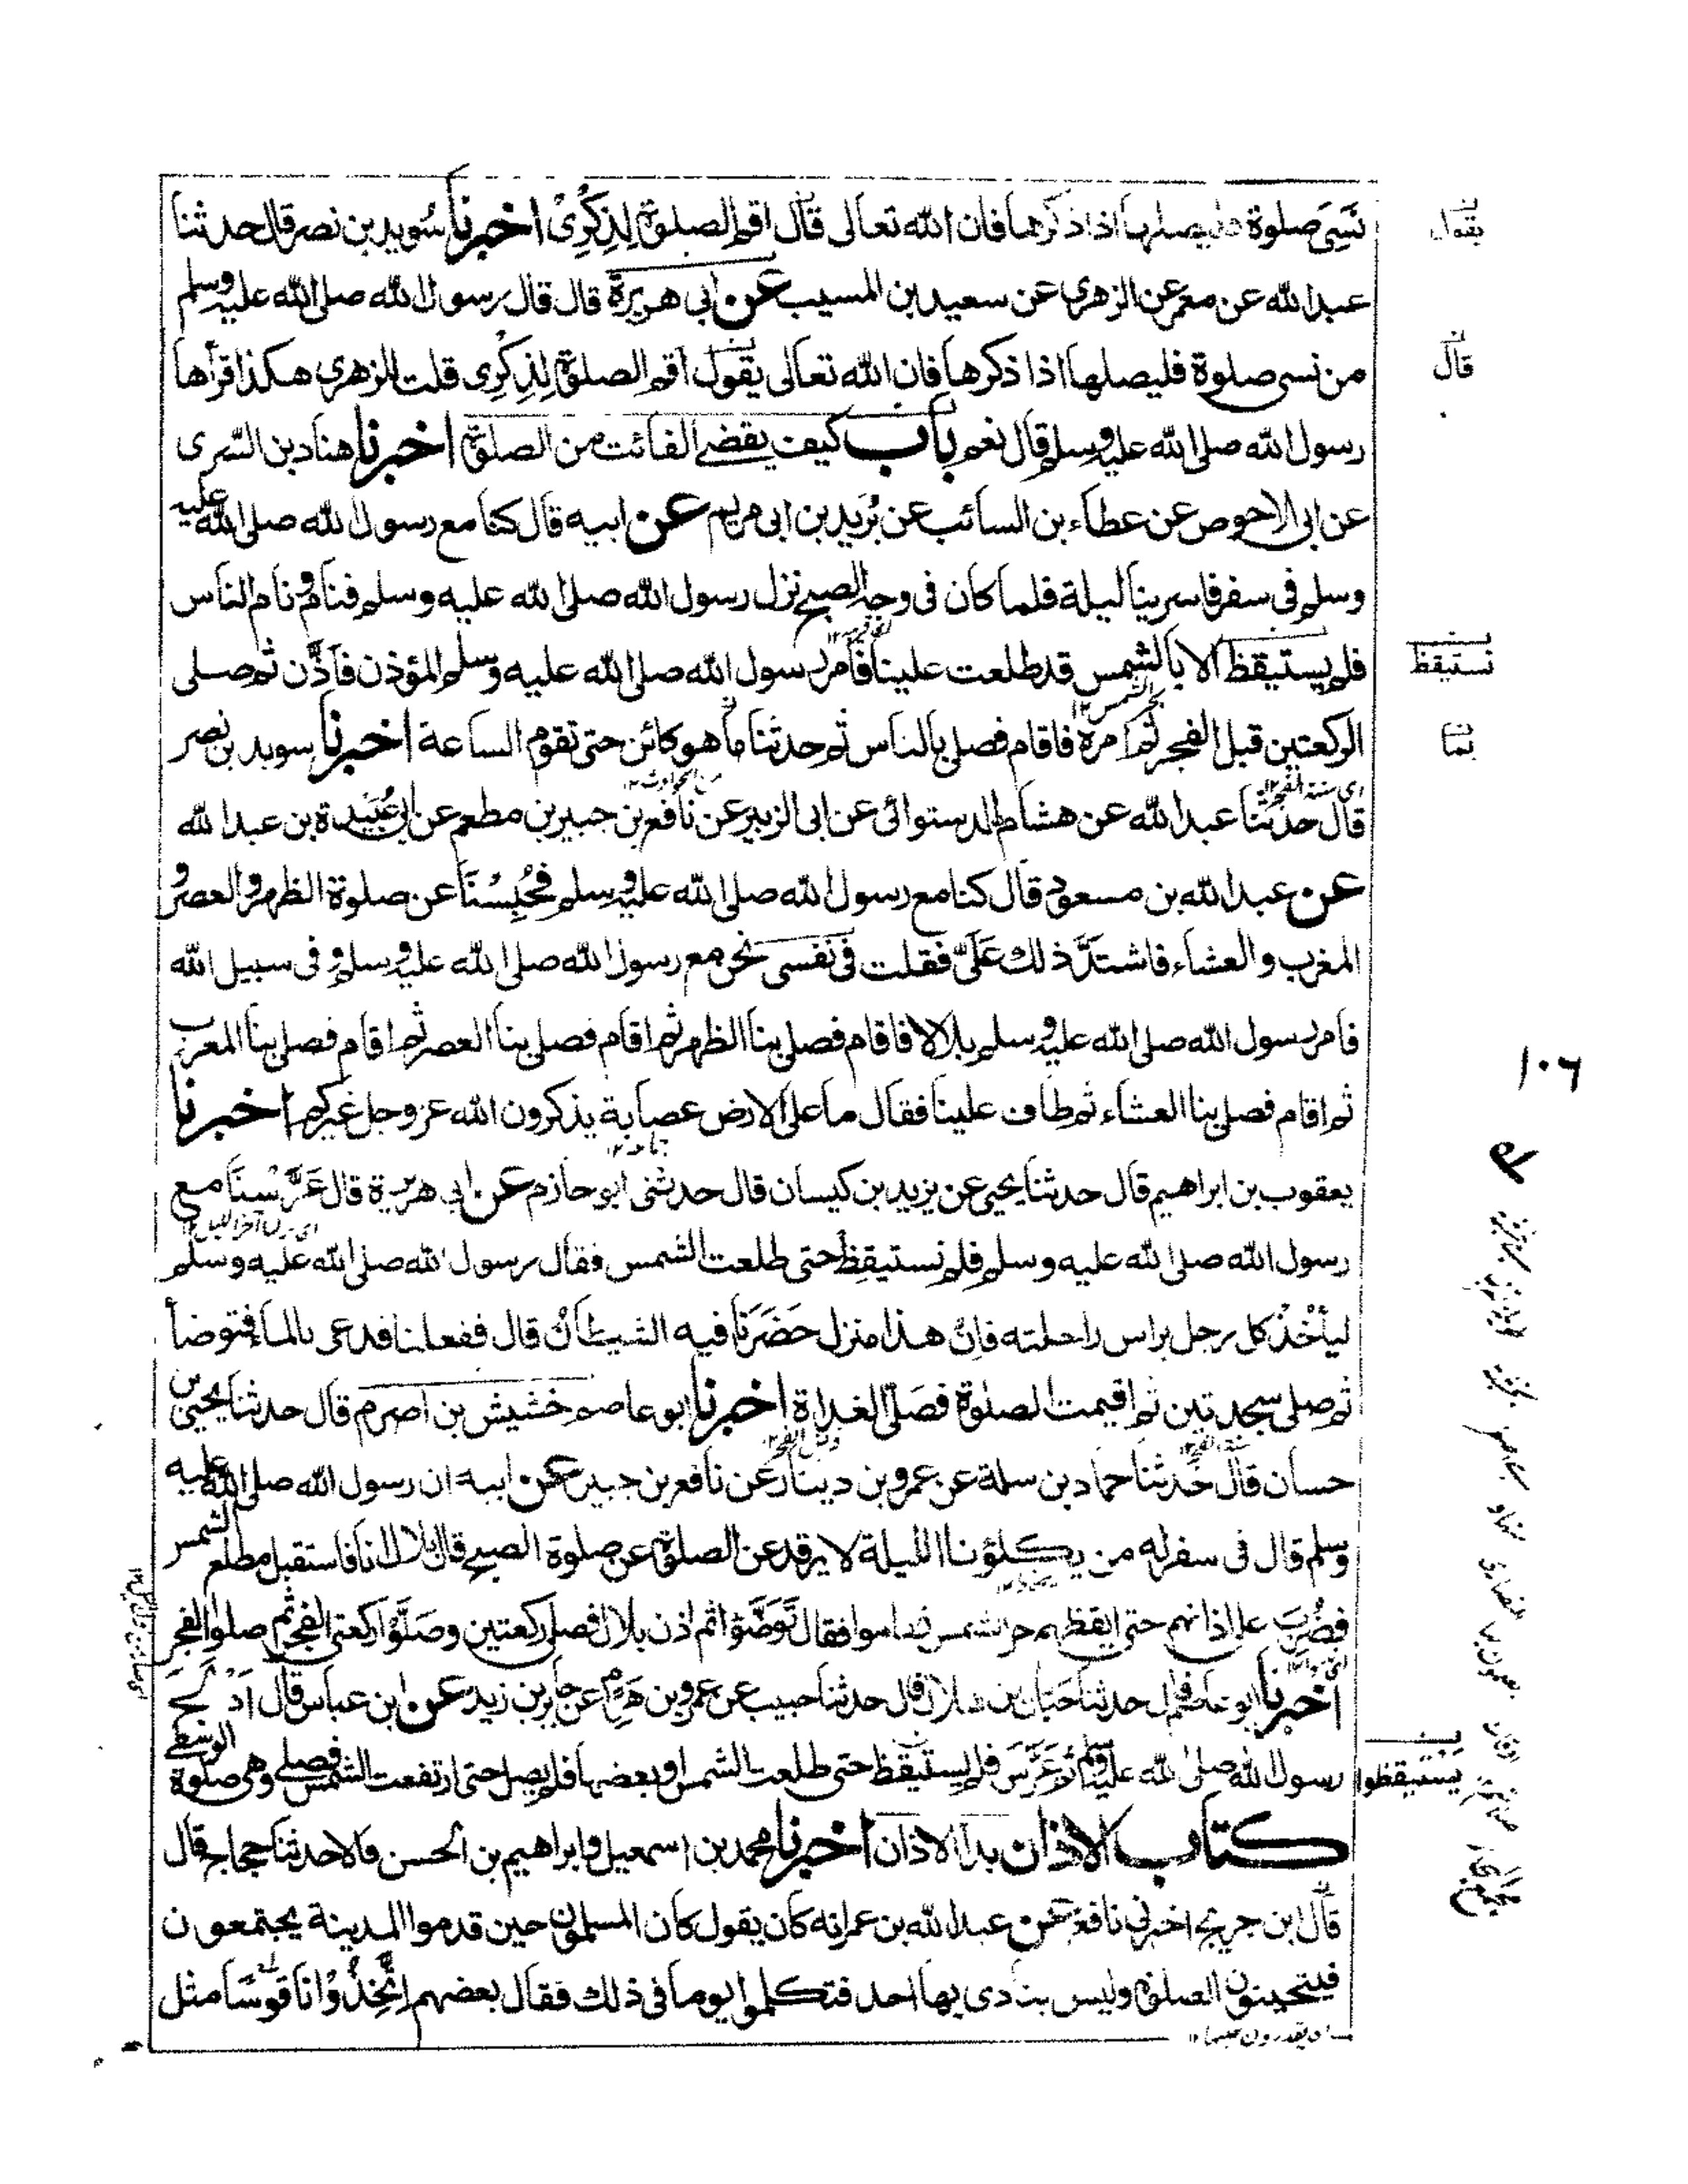 نَسِیَ صلوة فليصلها اذا ذكرها فان الله تعالى قال اقم الصلوة لِذِكْرِیْ اخبرنا سُويد بن نصر قال حدثنا
عبد الله عن معمر عن الزهري عن سعيد بن المسيب عن ابي هريرة قال قال رسول الله صلى الله عليه وسلم
من نسي صلوة فليصلها اذا ذكرها فان الله تعالى يقول اقم الصلوة لِذِكْرِى قلت للزهري هكذا قرأها
رسول الله صلى الله عليه وسلم قال نعم باب كيف يقضى الفائت من الصلوة اخبرنا هناد بن السّرى
عن ابى الاحوص عن عطاء بن السائب عن بُرَيد بن ابى مريم عن ابيه قال كنا مع رسول الله صلى الله عليه
وسلم فى سفر فاسرينا ليلة فلما كان فى وجه الصبح نزل رسول الله صلى الله عليه وسلم فنام ونام الناس
فلم يستيقظ الا بالشمس قد طلعت علينا فامر رسول الله صلى الله عليه وسلم المؤذن فاذّن ثم صلى
الركعتين قبل الفجر ثم امره فاقام فصلى بالناس ثم حدثنا ما هو كائن حتى تقوم الساعة اخبرنا سويد بن نصر
قال حدثنا عبد الله عن هشام الدستوائى عن ابى الزبير عن نافع بن جبير بن مطعم عن ابى عُبَيدة بن عبد الله
عن عبد الله بن مسعود قال كنا مع رسول الله صلى الله عليه وسلم فَحُبِسْنَا عن صلوة الظهر والعصر و
المغرب والعشاء فاشتدّ ذلك عَلَیَّ فقلت فى نفسى نحن مع رسول الله صلى الله عليه وسلم و فى سبيل الله
فامر رسول الله صلى الله عليه وسلم بلالا فاقام فصلى بنا الظهر ثم اقام فصلى بنا العصر ثم اقام فصلى بنا المغرب
ثم اقام فصلى بنا العشاء ثم طاف علينا فقال ما على الارض عصابة يذكرون الله عز وجل غيركم اخبرنا
يعقوب بن ابراهيم قال حدثنا يحيى عن يزيد بن كيسان قال حدثنى ابو حازم عن ابى هريرة قال عَرَّسْنَا مع
رسول الله صلى الله عليه وسلم فلم نستيقظ حتى طلعت الشمس فقال رسول الله صلى الله عليه وسلم
ليأخُذْ كل رجل براس راحلته فانّ هذا منزل حَضَرَنَا فيه الشيطانُ قال ففعلنا فدعى بالماء فتوضأ
ثم صلى سجدتين ثم اقيمت الصلوة فصَلّى الغداة اخبرنا ابو عاصم خشيش بن اصرم قال حدثنا يحيى بن
حسان قال حدثنا حماد بن سلمة عن عمرو بن دينار عن نافع بن جبير عن ابيه ان رسول الله صلى الله عليه
وسلم قال فى سفر له من يكلؤنا الليلة لا يرقد عن الصلوة عن صلوة الصبح قال بلال انا فاستقبل مطلع الشمس
فضُرِبَ على اذانهم حتى ايقظهم حر الشمس فقاموا فقال تَوَضَّؤا ثم اذن بلال فصلى ركعتين وصَلَّوْا ركعتى الفجر ثم صلوا الفجر
اخبرنا ابو عاصم قال حدثنا حَبّان بن هلال قال حدثنا حبيب عن عمرو بن هَرِم عن جابر بن زيد عن ابن عباس قال اَدْلَجَ
رسول الله صلى الله عليه وسلم ثم عَرَّسَ فلم يستيقظ حتى طلعت الشمس او بعضها فلم يصل حتى ارتفعت الشمس فصلى وهى صلوة الوسطى
كتاب الاذان بدأ الاذان اخبرنا محمد بن اسمعيل وابراهيم بن الحسن قالا حدثنا حجاج قال
قال ابن جريج اخبرنى نافع عن عبد الله بن عمر انه كان يقول كان المسلمون حين قدموا المدينة يجتمعون
فيتحينون الصلوة وليس ينادى بها احد فتكلموا يوما فى ذلك فقال بعضهم اتَّخِذُوْا ناقُوْسًا مثل
يقول
قال
نستيقظ
بما
١٠٦
يستيقظوا